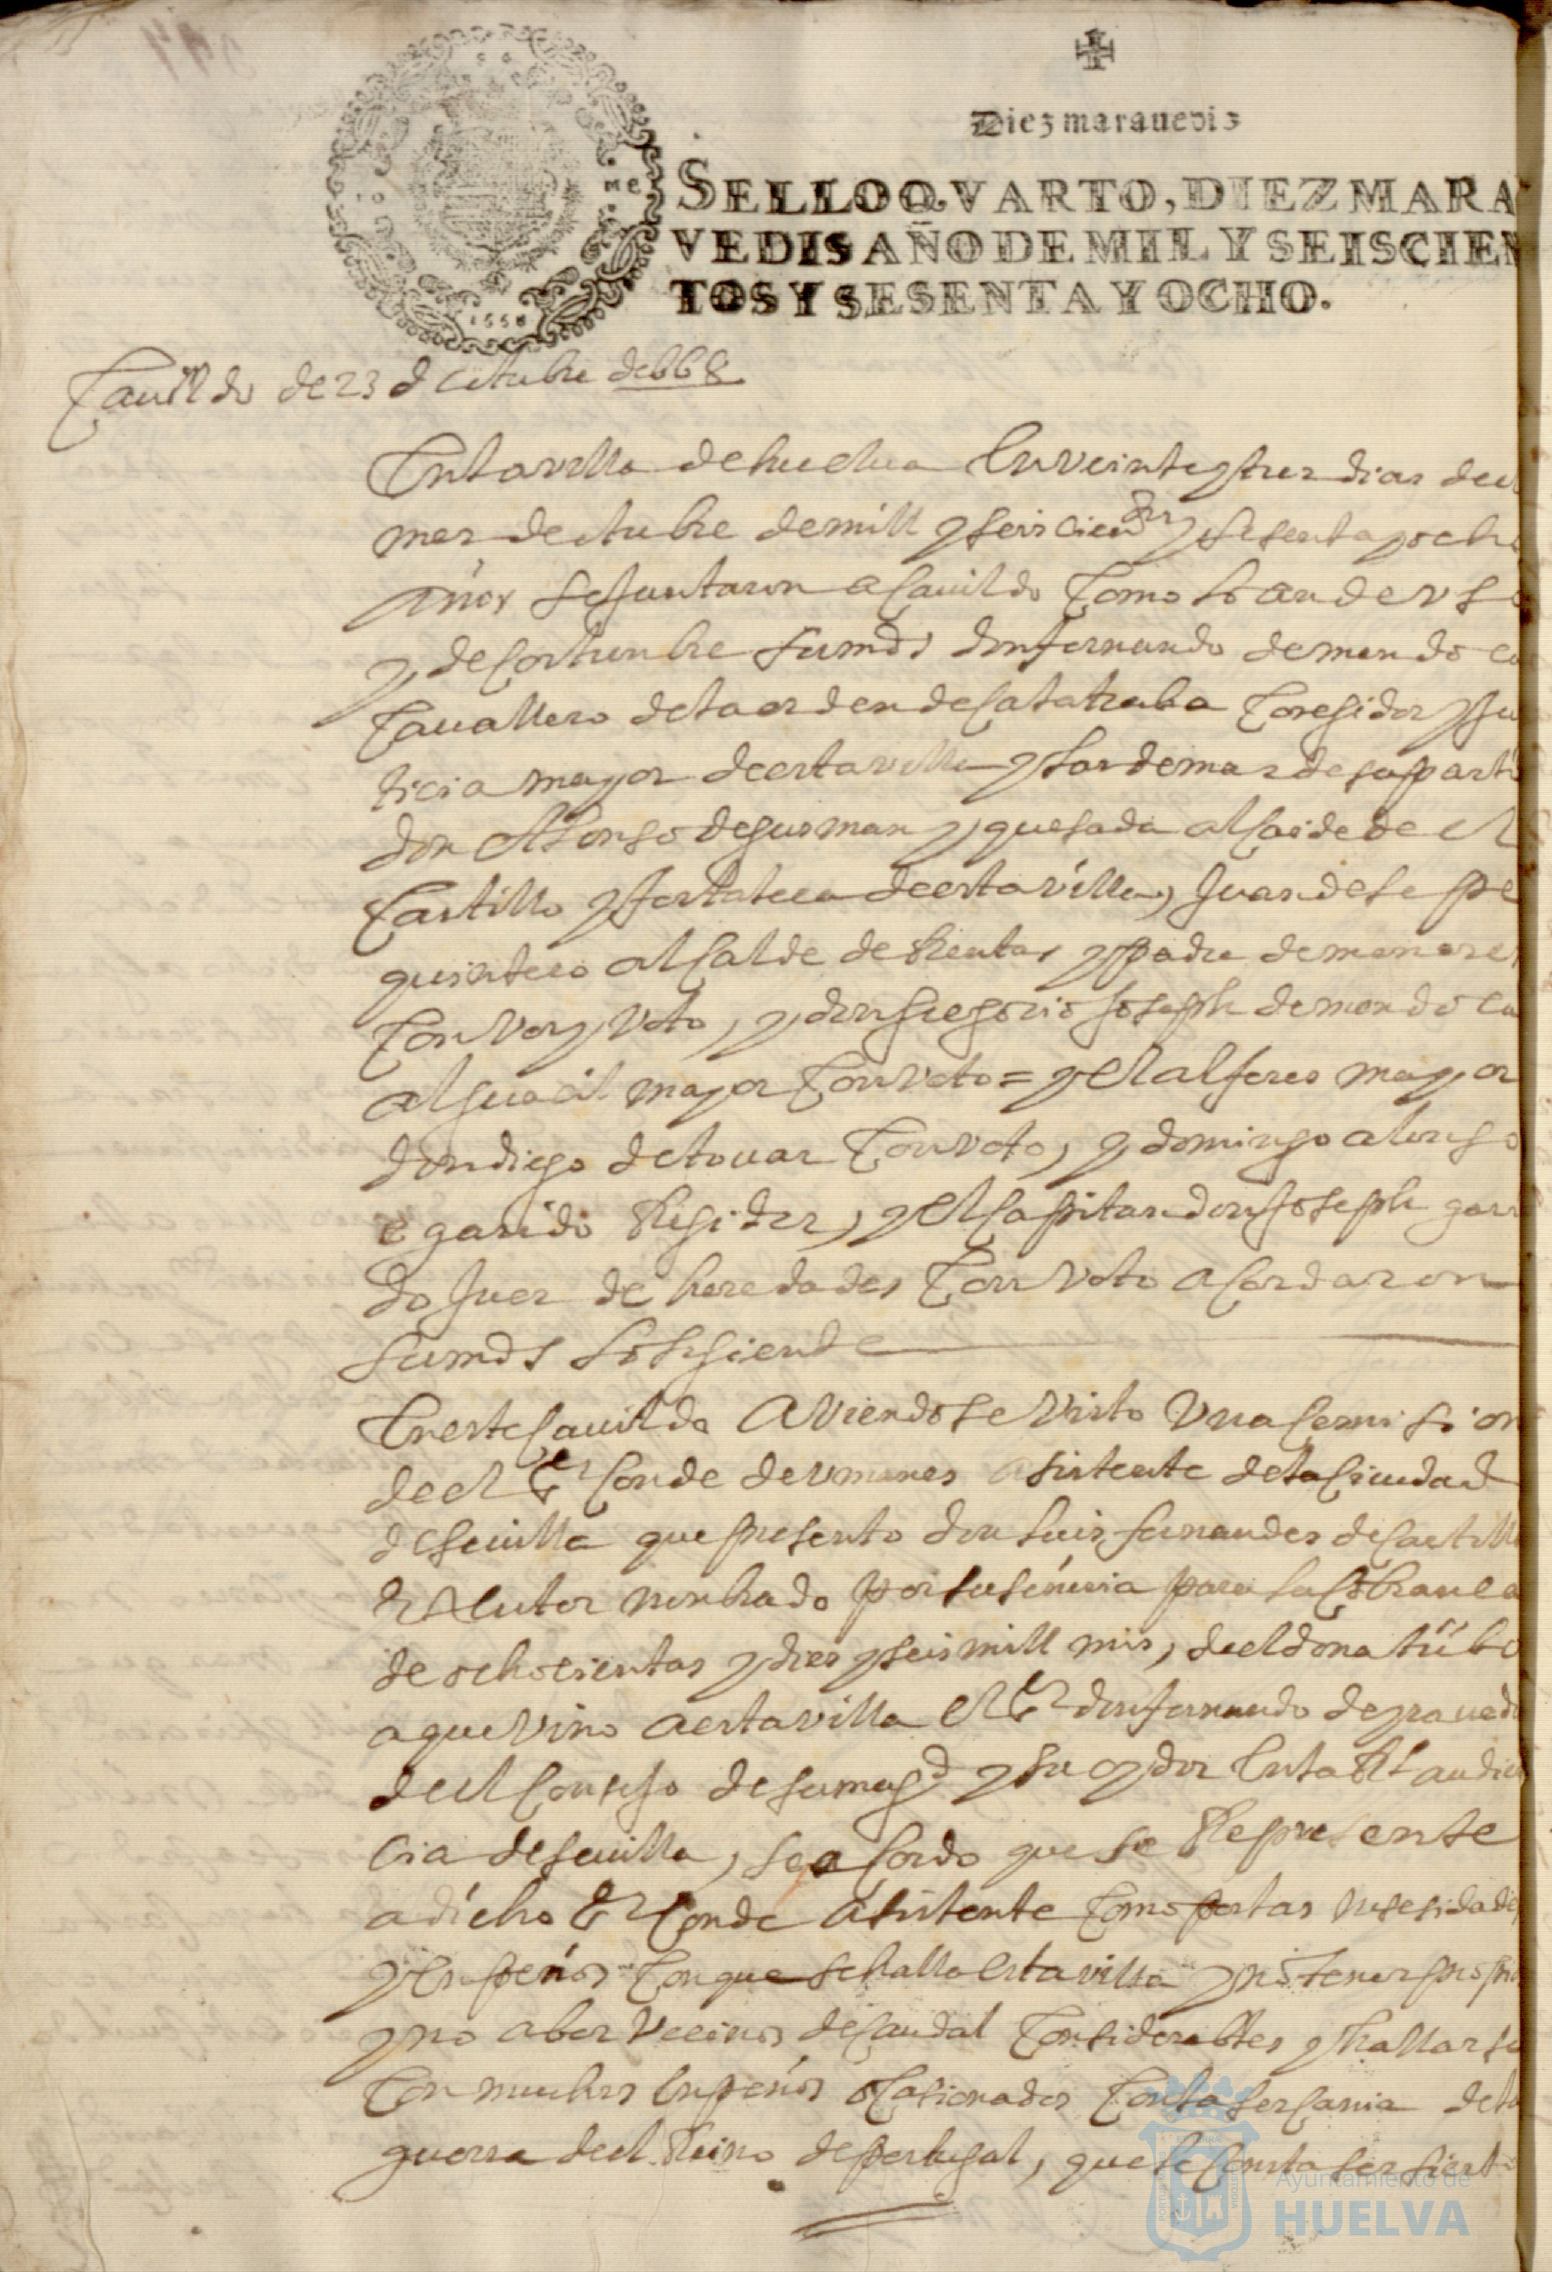 Diez maravedis
SELLO QVARTO, DIEZ MARA
VEDIS AÑO DE MIL Y SEISCIEN
TOS Y SESENTA Y OCHO.
Cauildo de 23 de otubre de 668
En la villa de huelua En veinte y tres dias deel
mes de otubre de mill y seiscientos y sesenta y ocho
años se Juntaron a Cauildo Como lo an de uso
y de Costunbre sus mds don fernando de mendoca
Cauallero de la orden de Calatraba Coregidor y Jus
ticia mayor de esta villa y los demas de su parti
don Alonso de gusman y quesada alcaide de el
Castillo y fortaleca de esta villa, Juan de Se
quintero alcalde de Rentas y padre de menores
Con Vos y Voto, y don gregorio Joseph de mendoca
alguacil mayor Con Voto = y el alferes mayor
don diego de touar Con Voto, y domingo alonso
garido Regidor, y el capitan don Joseph garri
do Juez de heredades Con Voto acordaron
sus mds lo siguiente
En este Cauildo aviendose visto Vna Comision
de el sr Conde de umanes asistente de la Ciudad
de seuilla que presento don luis fernandes de Castilla
executor nonbrado por su señoria para la cobranca
de ochocientas y dies y seis mill mrs, de el donatiibo
a que vino a esta villa el sr don fernando de
de el Consejo de su magd y su oydor En la Rl audien
cia de seuilla, se acordo que se Represente
a dicho sr Conde asistente Como por las nesesidades
y enpeños Con que se halla esta villa y no tener propios
y no aber vecinos de Caudal Considerables y hallarse
Con muchos enpeños ocasionados Con la sercania de la
guerra deel Reino de portugal, que le Consta ser sierto
Ayuntamiento de
HUELVA